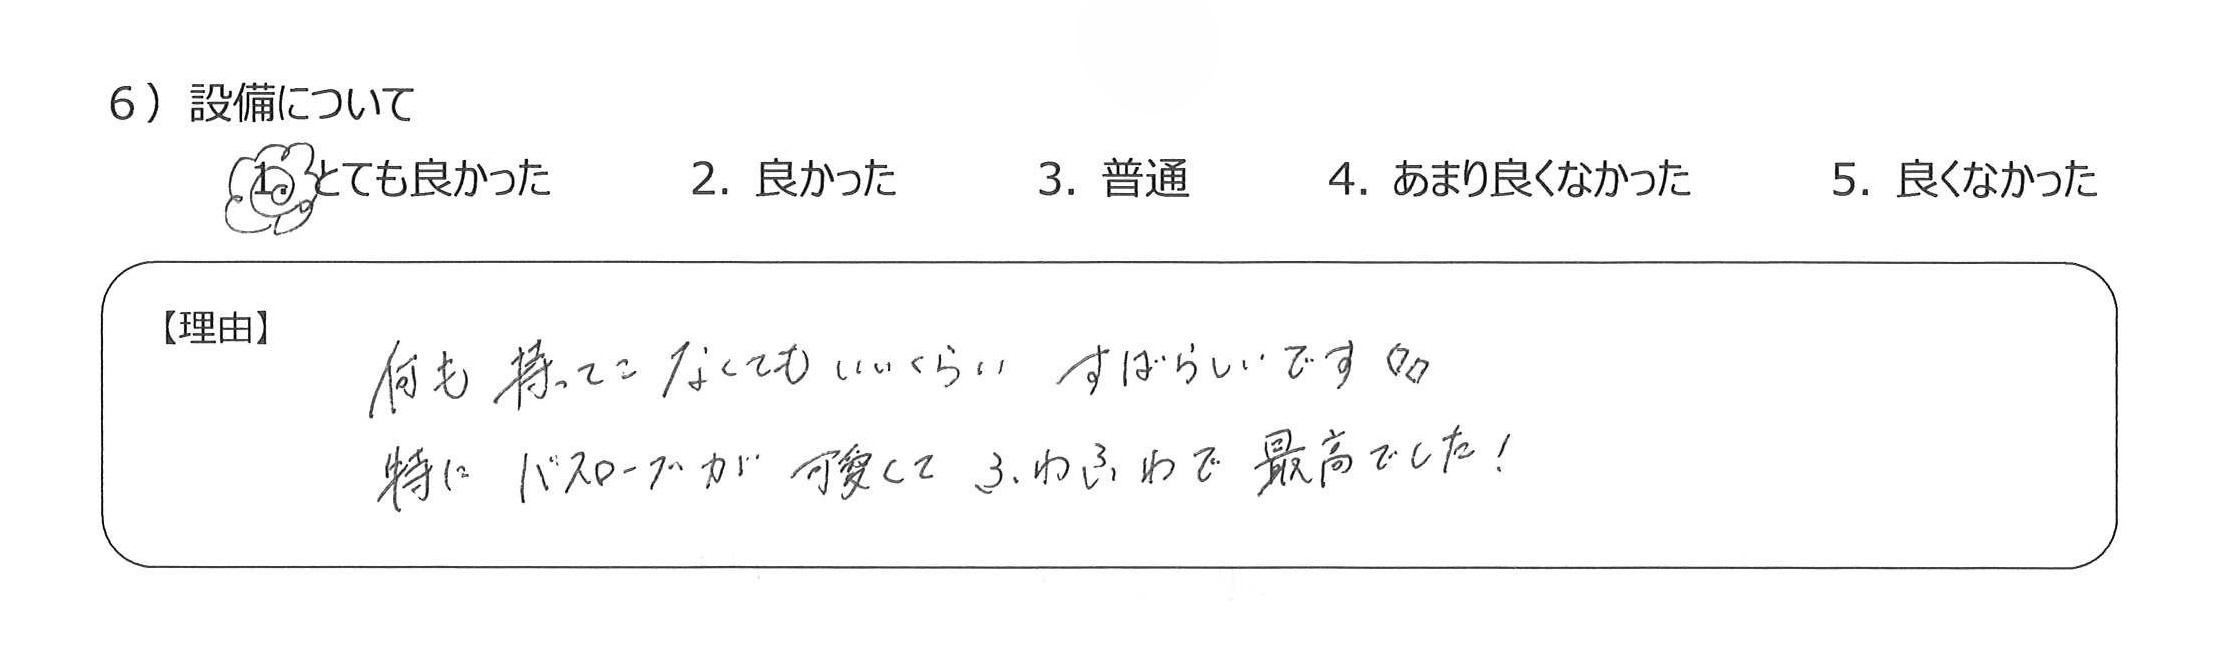 6）設備について
1. とても良かった 2. 良かった 3. 普通 4. あまり良くなかった 5. 良くなかった
【理由】
何も持ってこなくてもいいくらい すばらしいです
特に バスローブが 可愛くて ふわふわで 最高でした!